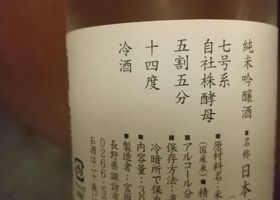 純米吟醸酒
七号系
自社株酵母
五割五分
十四度
冷酒
■名称 日本
■原材料名：米
（国産米）■精
■アルコール分
■保存方法：
冷暗所で保存
■内容量：3
■製造者：宮坂
長野県諏訪市
0266-5
お酒は二十歳